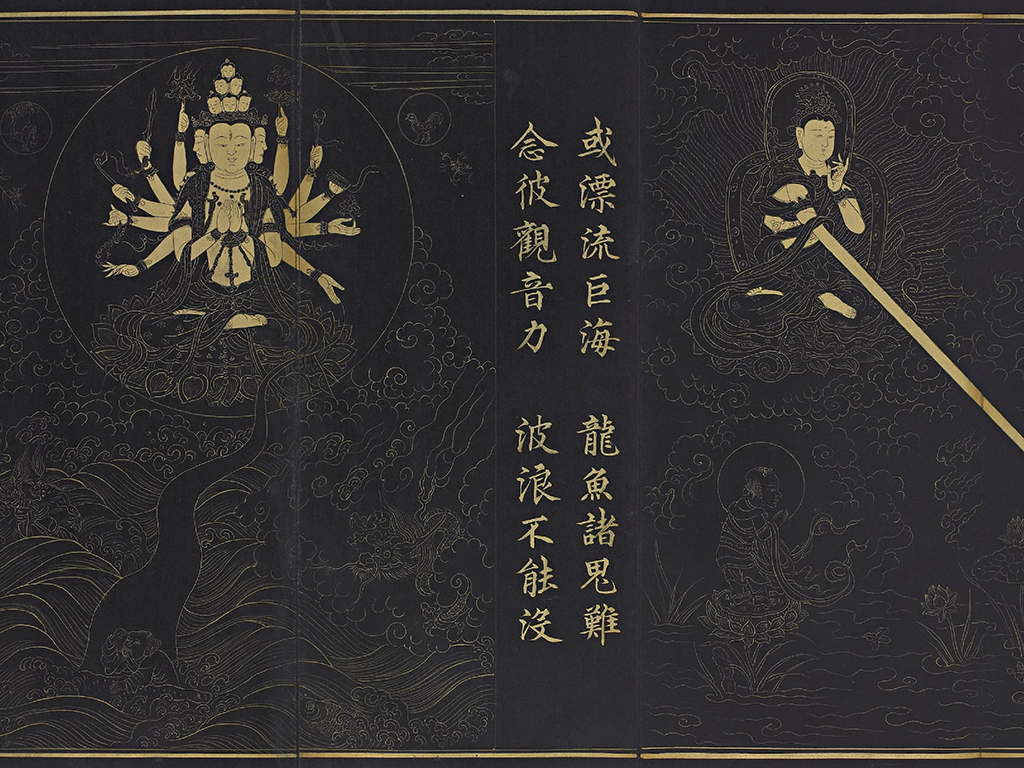 或漂流巨海　龍魚諸鬼難
念彼觀音力　波浪不能沒